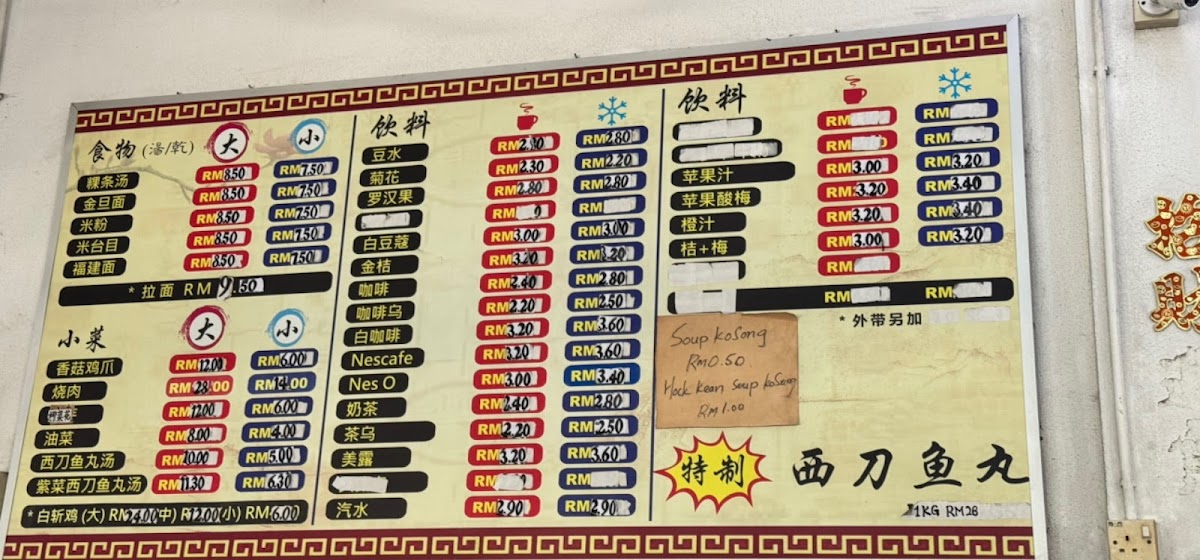 食物 (湯/乾) 大 小
粿条汤 RM8.50 RM7.50
金旦面 RM8.50 RM7.50
米粉 RM8.50 RM7.50
米台目 RM8.50 RM7.50
福建面 RM8.50 RM7.50
* 拉面 RM 9.50
小菜 大 小
香菇鸡爪 RM12.00 RM6.00
烧肉 RM28.00 RM14.00
RM12.00 RM6.00
油菜 RM8.00 RM4.00
西刀鱼丸汤 RM10.00 RM5.00
紫菜西刀鱼丸汤 RM11.30 RM6.30
* 白斩鸡 (大) RM24.00 (中) RM12.00 (小) RM6.00
饮料
豆水 RM RM2.80
菊花 RM2.30 RM2.20
罗汉果 RM2.80 RM2.80
RM RM
白豆蔻 RM3.00 RM3.00
金桔 RM3.20 RM3.20
咖啡 RM2.40 RM2.80
咖啡乌 RM2.20 RM2.50
白咖啡 RM3.20 RM3.60
Nescafe RM3.20 RM3.60
Nes O RM3.00 RM3.40
奶茶 RM2.40 RM2.80
茶乌 RM2.20 RM2.50
美露 RM3.20 RM3.60
RM RM
汽水 RM2.90 RM2.90
饮料
RM RM
RM RM
苹果汁 RM3.00 RM3.20
苹果酸梅 RM3.20 RM3.40
橙汁 RM3.20 RM3.40
桔+梅 RM3.00 RM3.20
RM
RM RM
* 外带另加
Soup koSong
RM0.50
Hock kean Soup koSong
RM1.00
特制 西刀鱼丸
1KG RM28